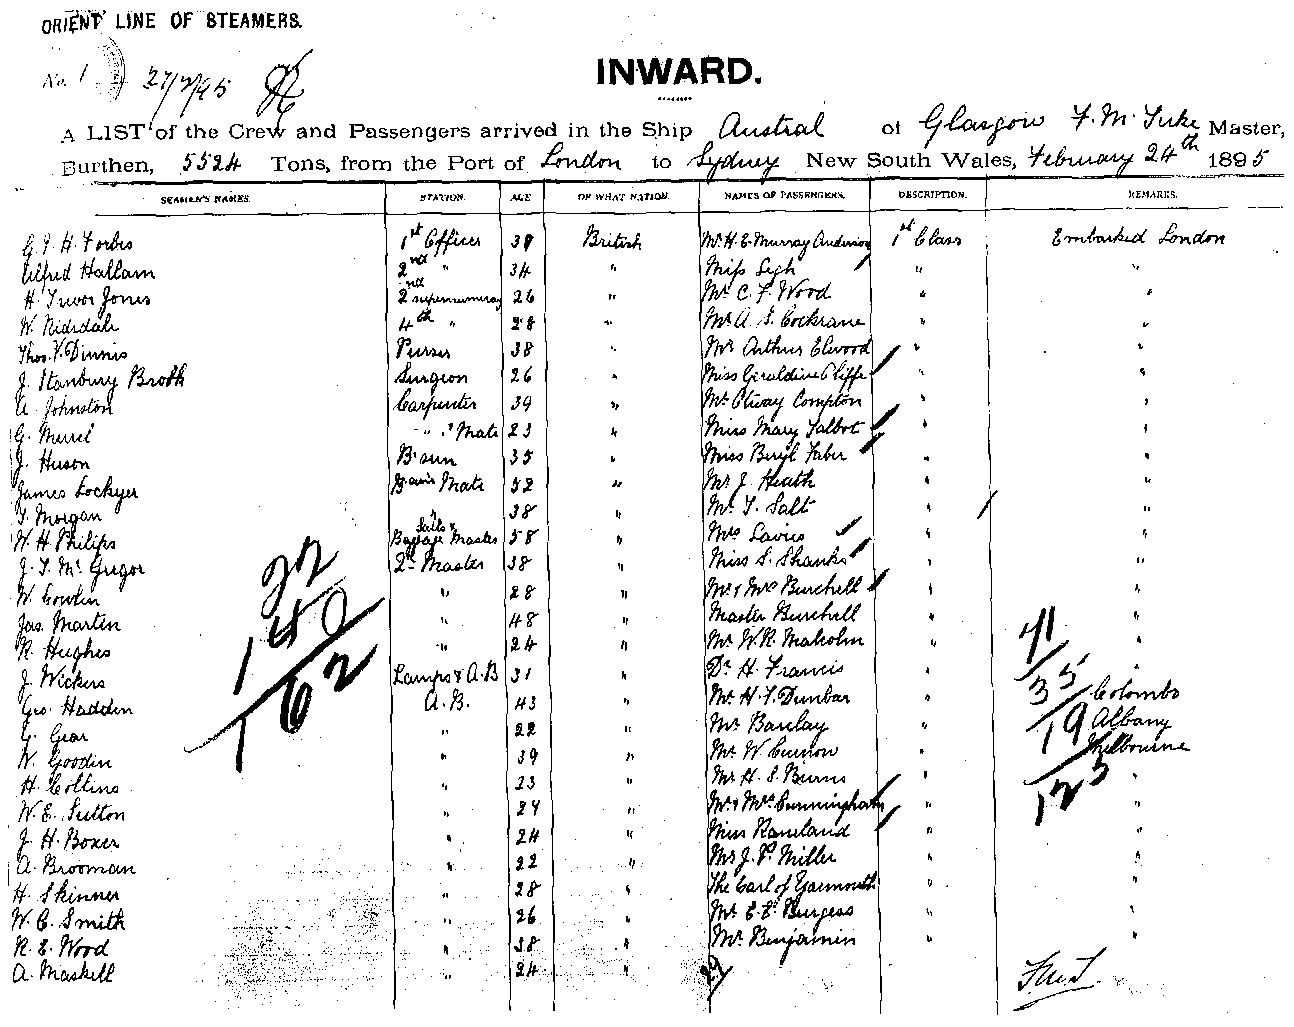 ORIENT LINE OF STEAMERS.
No. 1
27/2/95
INWARD.
A LIST of the Crew and Passengers arrived in the Ship Austral of Glasgow F. M. Tuke Master,
Burthen, 5524 Tons, from the Port of London to Sydney New South Wales, February 24th 1895
SEAMEN'S NAMES. STATION. AGE OF WHAT NATION. NAMES OF PASSENGERS. DESCRIPTION. REMARKS.
G. J. H. Forbes 1st Officer 39 British Mr H. E. Murray Anderson 1st Class Embarked London
Alfred Hallam 2nd " 34 " Miss Legh " "
H. Trevor Jones 2nd supernumeray 26 " Mr C. F. Wood " "
W. Nidsdale 4th " 28 " Mr A. S. Cockrane " "
Thos. V. Dinnis Purser 38 " Mr Arthur Elwood " "
J. Stanbury Broth Surgeon 26 " Miss Geraldine Oliffe " "
A. Johnston Carpenter 39 " Mr Otway Compton " "
G. Murrel " " Mate 23 " Miss Mary Talbot " "
J. Huson B'sun 35 " Miss Beryl Faber " "
James Lockyer B'suns Mate 52 " Mr J. Heath " "
T. Morgan " 38 " Mr T. Salt " "
W. H. Philips Sails & Baggage Master 58 " Mrs Savies " "
J. T. McGregor Qr Master 38 " Miss S. Shanks " "
W. Cowlin " 28 " Mr & Mrs Burchell " "
Jas. Martin " 48 " Master Burchell " "
R. Hughes " 24 " Mr W. R. Malcolm " "
J. Wickers Lamps & A.B 31 " Dr H. Francis " "
Geo. Hadden A.B. 43 " Mr H. T. Dunbar " Colombo
G. Gear " 22 " Mr Barclay " Albany
W. Goodin " 39 " Mr W. Curnon " Melbourne
H. Collins " 23 " Mr H. S. Burns " "
W. E. Sutton " 24 " Mr & Mrs Cunningham " "
J. H. Boxer " 24 " Miss Kaneland " "
A. Brooman " 22 " Mr J. P. Miller " "
H. Skinner " 28 " The Earl of Yarmouth " "
W. C. Smith " 26 " Mr E. E. Burgess " "
R. E. Wood " 38 " Mr Benjamin " "
A. Maskell " 24 "
22
140
162
71
35
19
125